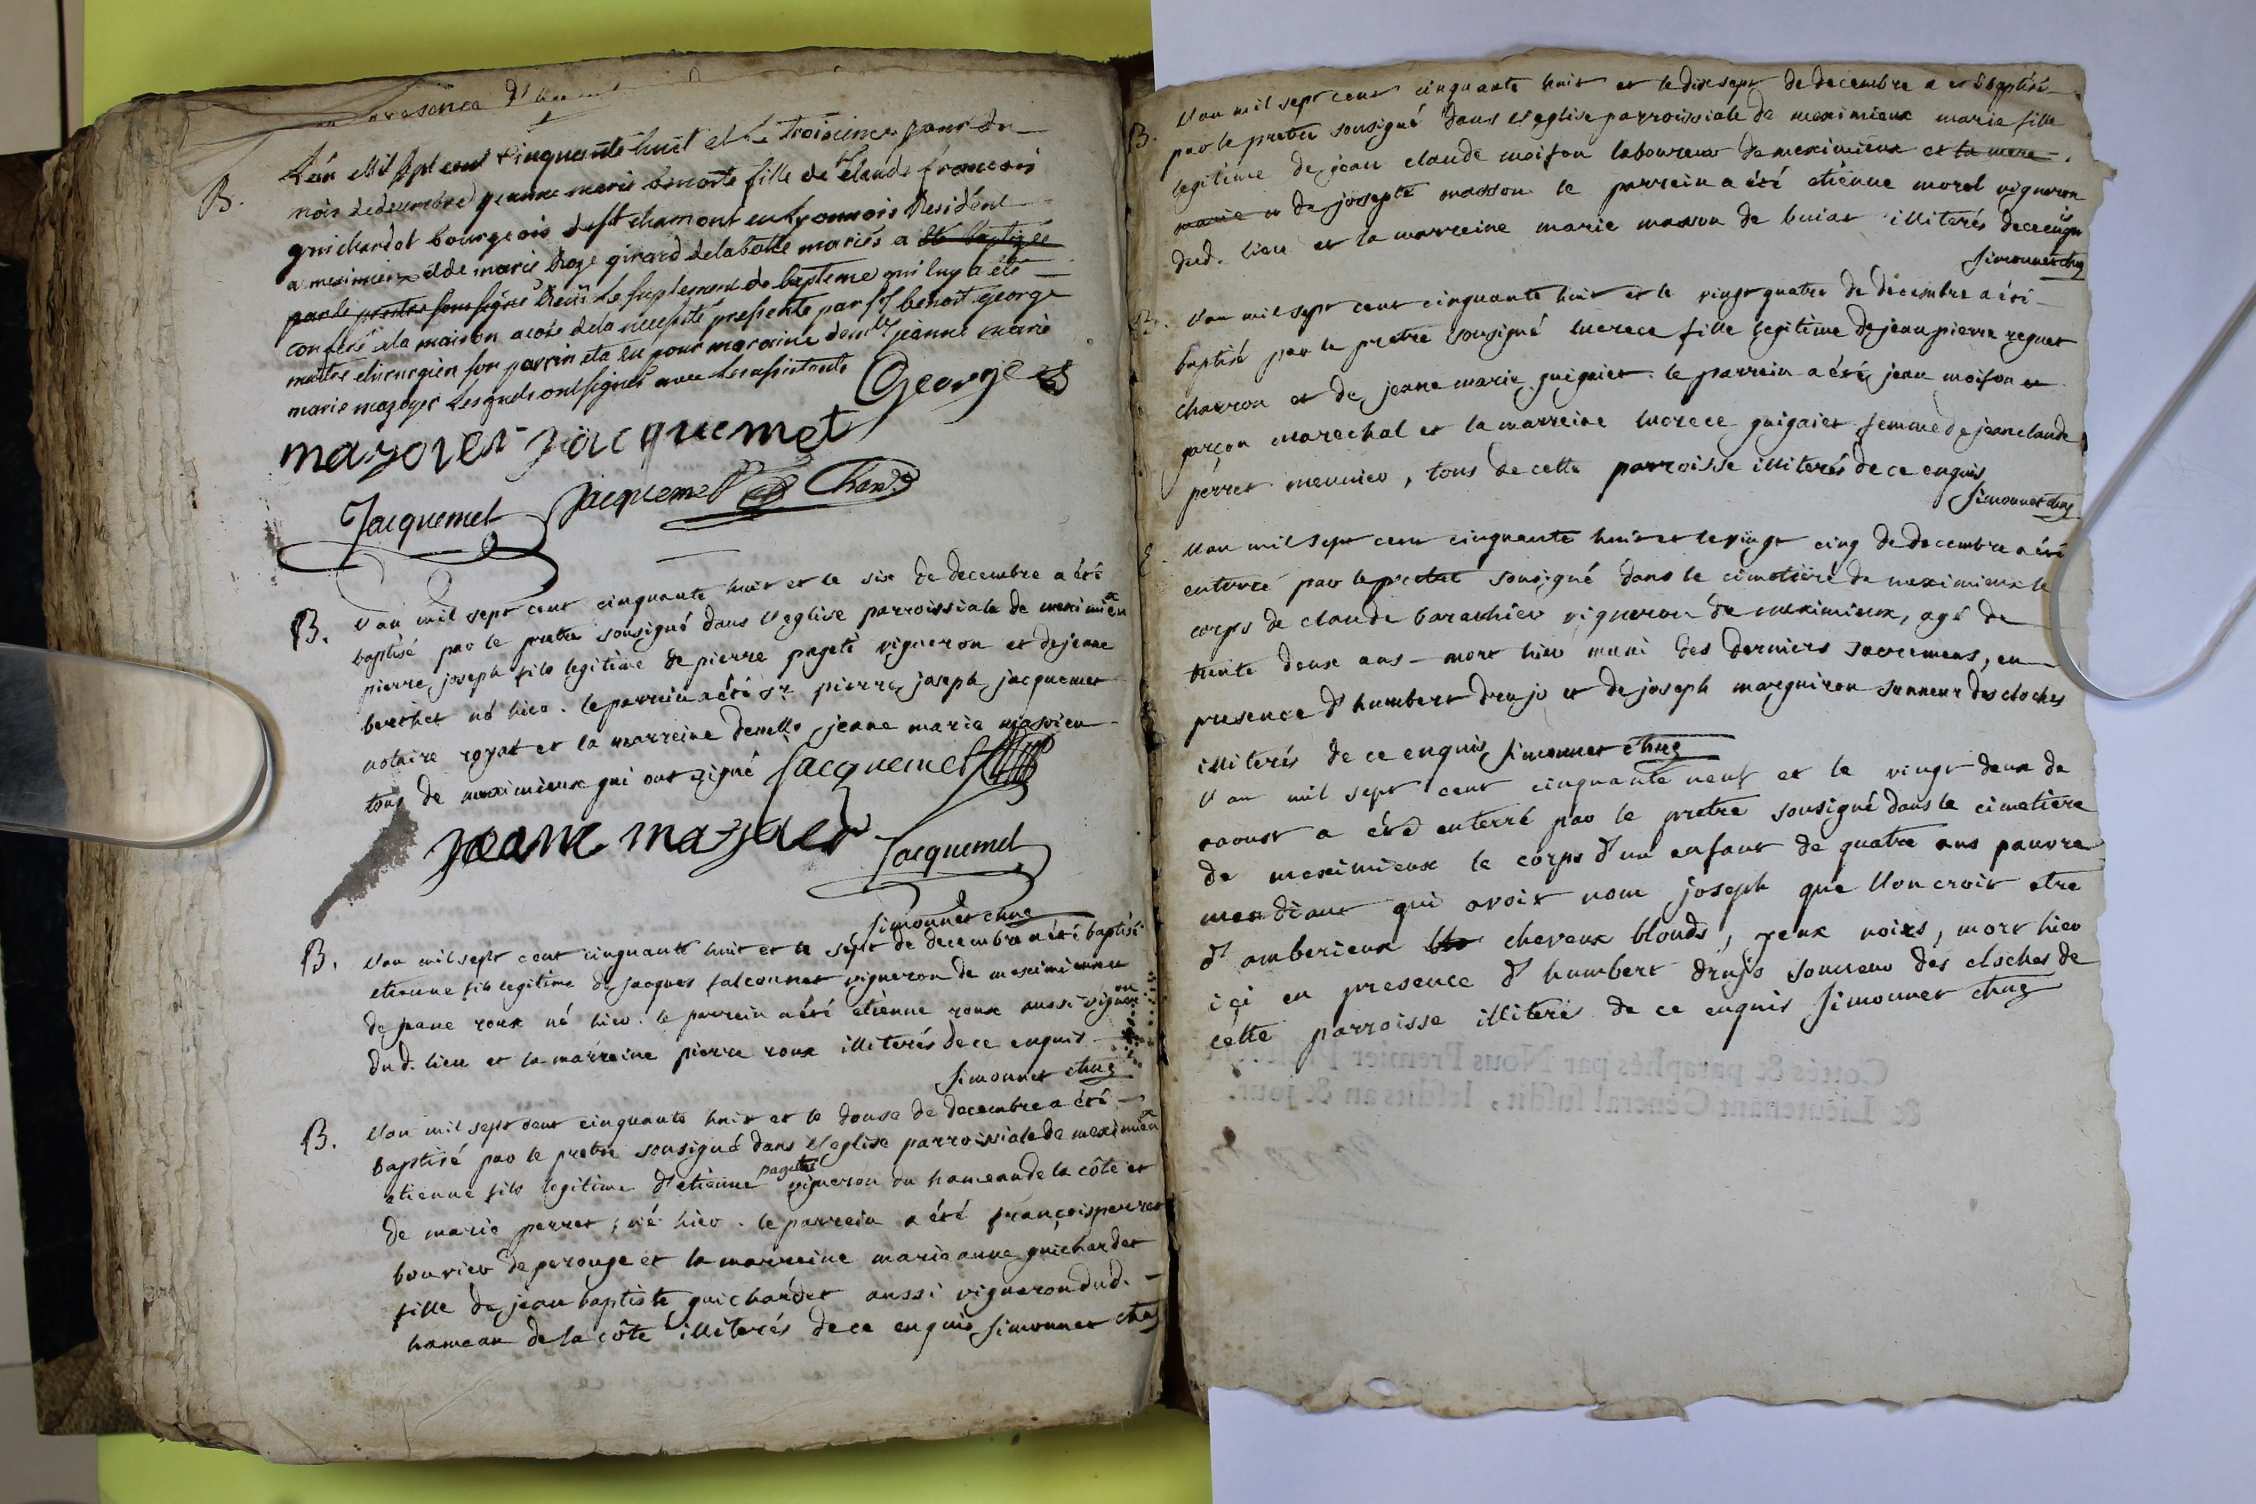 en presence d'
B. L'an Mil sept cent cinquante huit et le troisieme jour du
mois de decembre jeanne marie benoite fille de sr claude francois
guichardet bourgeois de st chamont en Lyonnois Residént
a meximieux et de marie Roze girard delabatte mariés a été baptizée
par le pretre soussigné Recu le suplement de bapteme qui luy a été
conferé a la maison a cause de la necessité presentée par sr benoit george
maitre chirurgien son parrin et a eu pour marraine demlle jeanne marie
marie mazoyer Lesquels ont signés avec les assistants
George
mazoyer jacquemet
Jacquemet Jacquemet Chane
B. L'an mil sept cent cinquante huit et le six de decembre a été
baptisé par le pretre sousigné dans l'eglise parroissiale de meximieux
pierre joseph fils legitime de pierre pagete vigneron et de jeane
berthet né hier. le parrein a été sr. pierre joseph jacquemet
notaire royal et la marreine demelle jeane marie masoier
tous de meximieux qui ont signé Jacquemet
jeanne mazoier Jacquemet
Simonnet chne
B. L'an mil sept cent cinquante huit et le sept de decembre a été baptisé
etienne fils legitime de jacques falconnet vigneron de meximieux et
de jeane roux né hier. le parrein a été etienne roux aussi vigneron
dud. lieu et la marreine pierre roux illiterés de ce enquis
Simonnet chne
B. L'an mil sept cent cinquante huit et le douse de decembre a été
baptisé par le pretre sousigné dans l'eglise parroissiale de meximieux
etienne fils legitime d'etienne pagete vigneron du hameau de la côte et
de marie perret, né hier. le parrein a été françois perret
bouvier de perouge et la marreine marie anne guichardet
fille de jean baptiste guichardet aussi vigneron dud.
hameau de la côte illiterés de ce enquis Simonnet chne
B. L'an mil sept cent cinquante huit et le dix sept de decembre a eté baptisé
par le pretre sousigné dans l'eglise parroissiale de meximieux marie fille
legitime de jean claude moifon laboureur de meximieux et la mere
marie et de josepte masson le parrein a été etienne morel vigneron
dud. lieu et la marreine marie masson de buiat illiterés de ce enquis
Simonnet chne
B. L'an mil sept cent cinquante huit et le vingt quatre de decembre a été
baptisé par le pretre sousigné lucrece fille legitime de jean pierre reguet
charron et de jeane marie guigaiet. le parrein a été jean moifon
garçon marechal et la marreine lucrece guigaiet femme de jean claude
perret meunier, tous de cette parroisse illiterés de ce enquis
Simonnet chne
L'an mil sept cent cinquante huit et le vingt cinq de decembre a été
enterré par le pretre sousigné dans le cimetiere de meximieux le
corps de claude baranhier vigneron de meximieux, agé de
trente deux ans mort hier muni des derniers sacremens, en
presence d'humbert drujo et de joseph marguiron sonneur des cloches
illiterés de ce enquis Simonnet chne
L'an mil sept cent cinquante neuf et le vingt deux de
aoust a été enterré par le pretre sousigné dans le cimetiere
de meximieux le corps d'un enfant de quatre ans pauvre
mendiant qui avoit nom joseph que l'on croit etre
d'amberieux cheveux blonds, yeux noirs, mort hier
içi en presence d'humbert drujo sonneur des cloches de
cette parroisse illiteré de ce enquis Simonnet chne
Cottés & paraphés par Nous Premier
& Lieutenant Général susdit, lesdits an & jour.